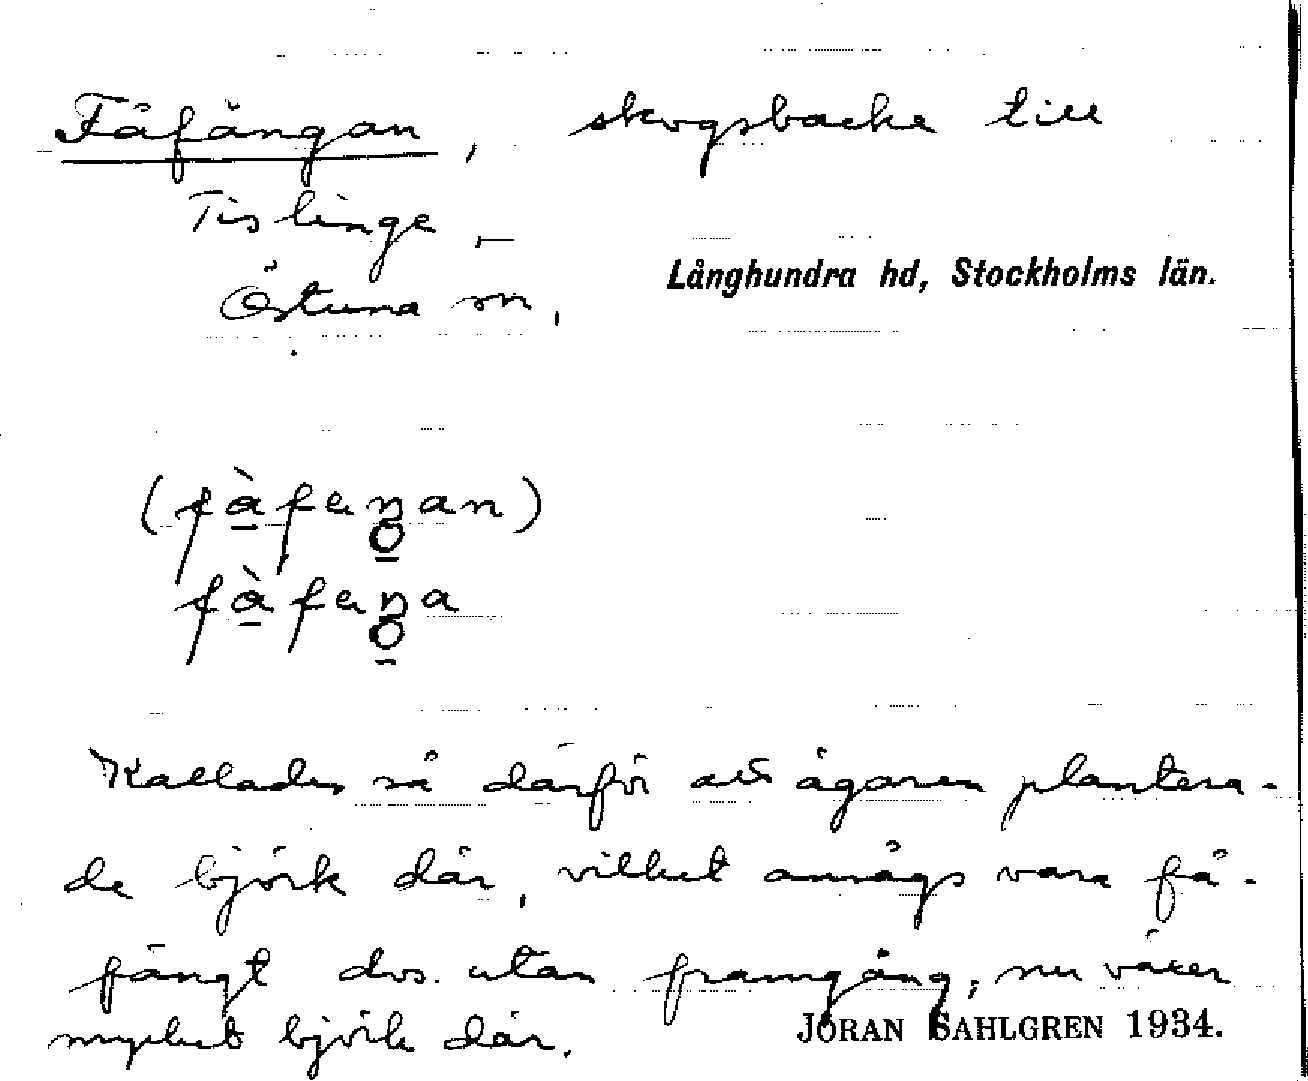 Fåfängan, skogsbacke till
Tislinge,
Östuna sn,
Långhundra hd, Stockholms län.
(fàfeŋan)
fàfeŋa
Kallades så därför att ägaren plantera-
de björk där, vilket ansågs vara få-
fängt dvs. utan framgång; nu växer
mycket björk där.
JÖRAN SAHLGREN 1934.